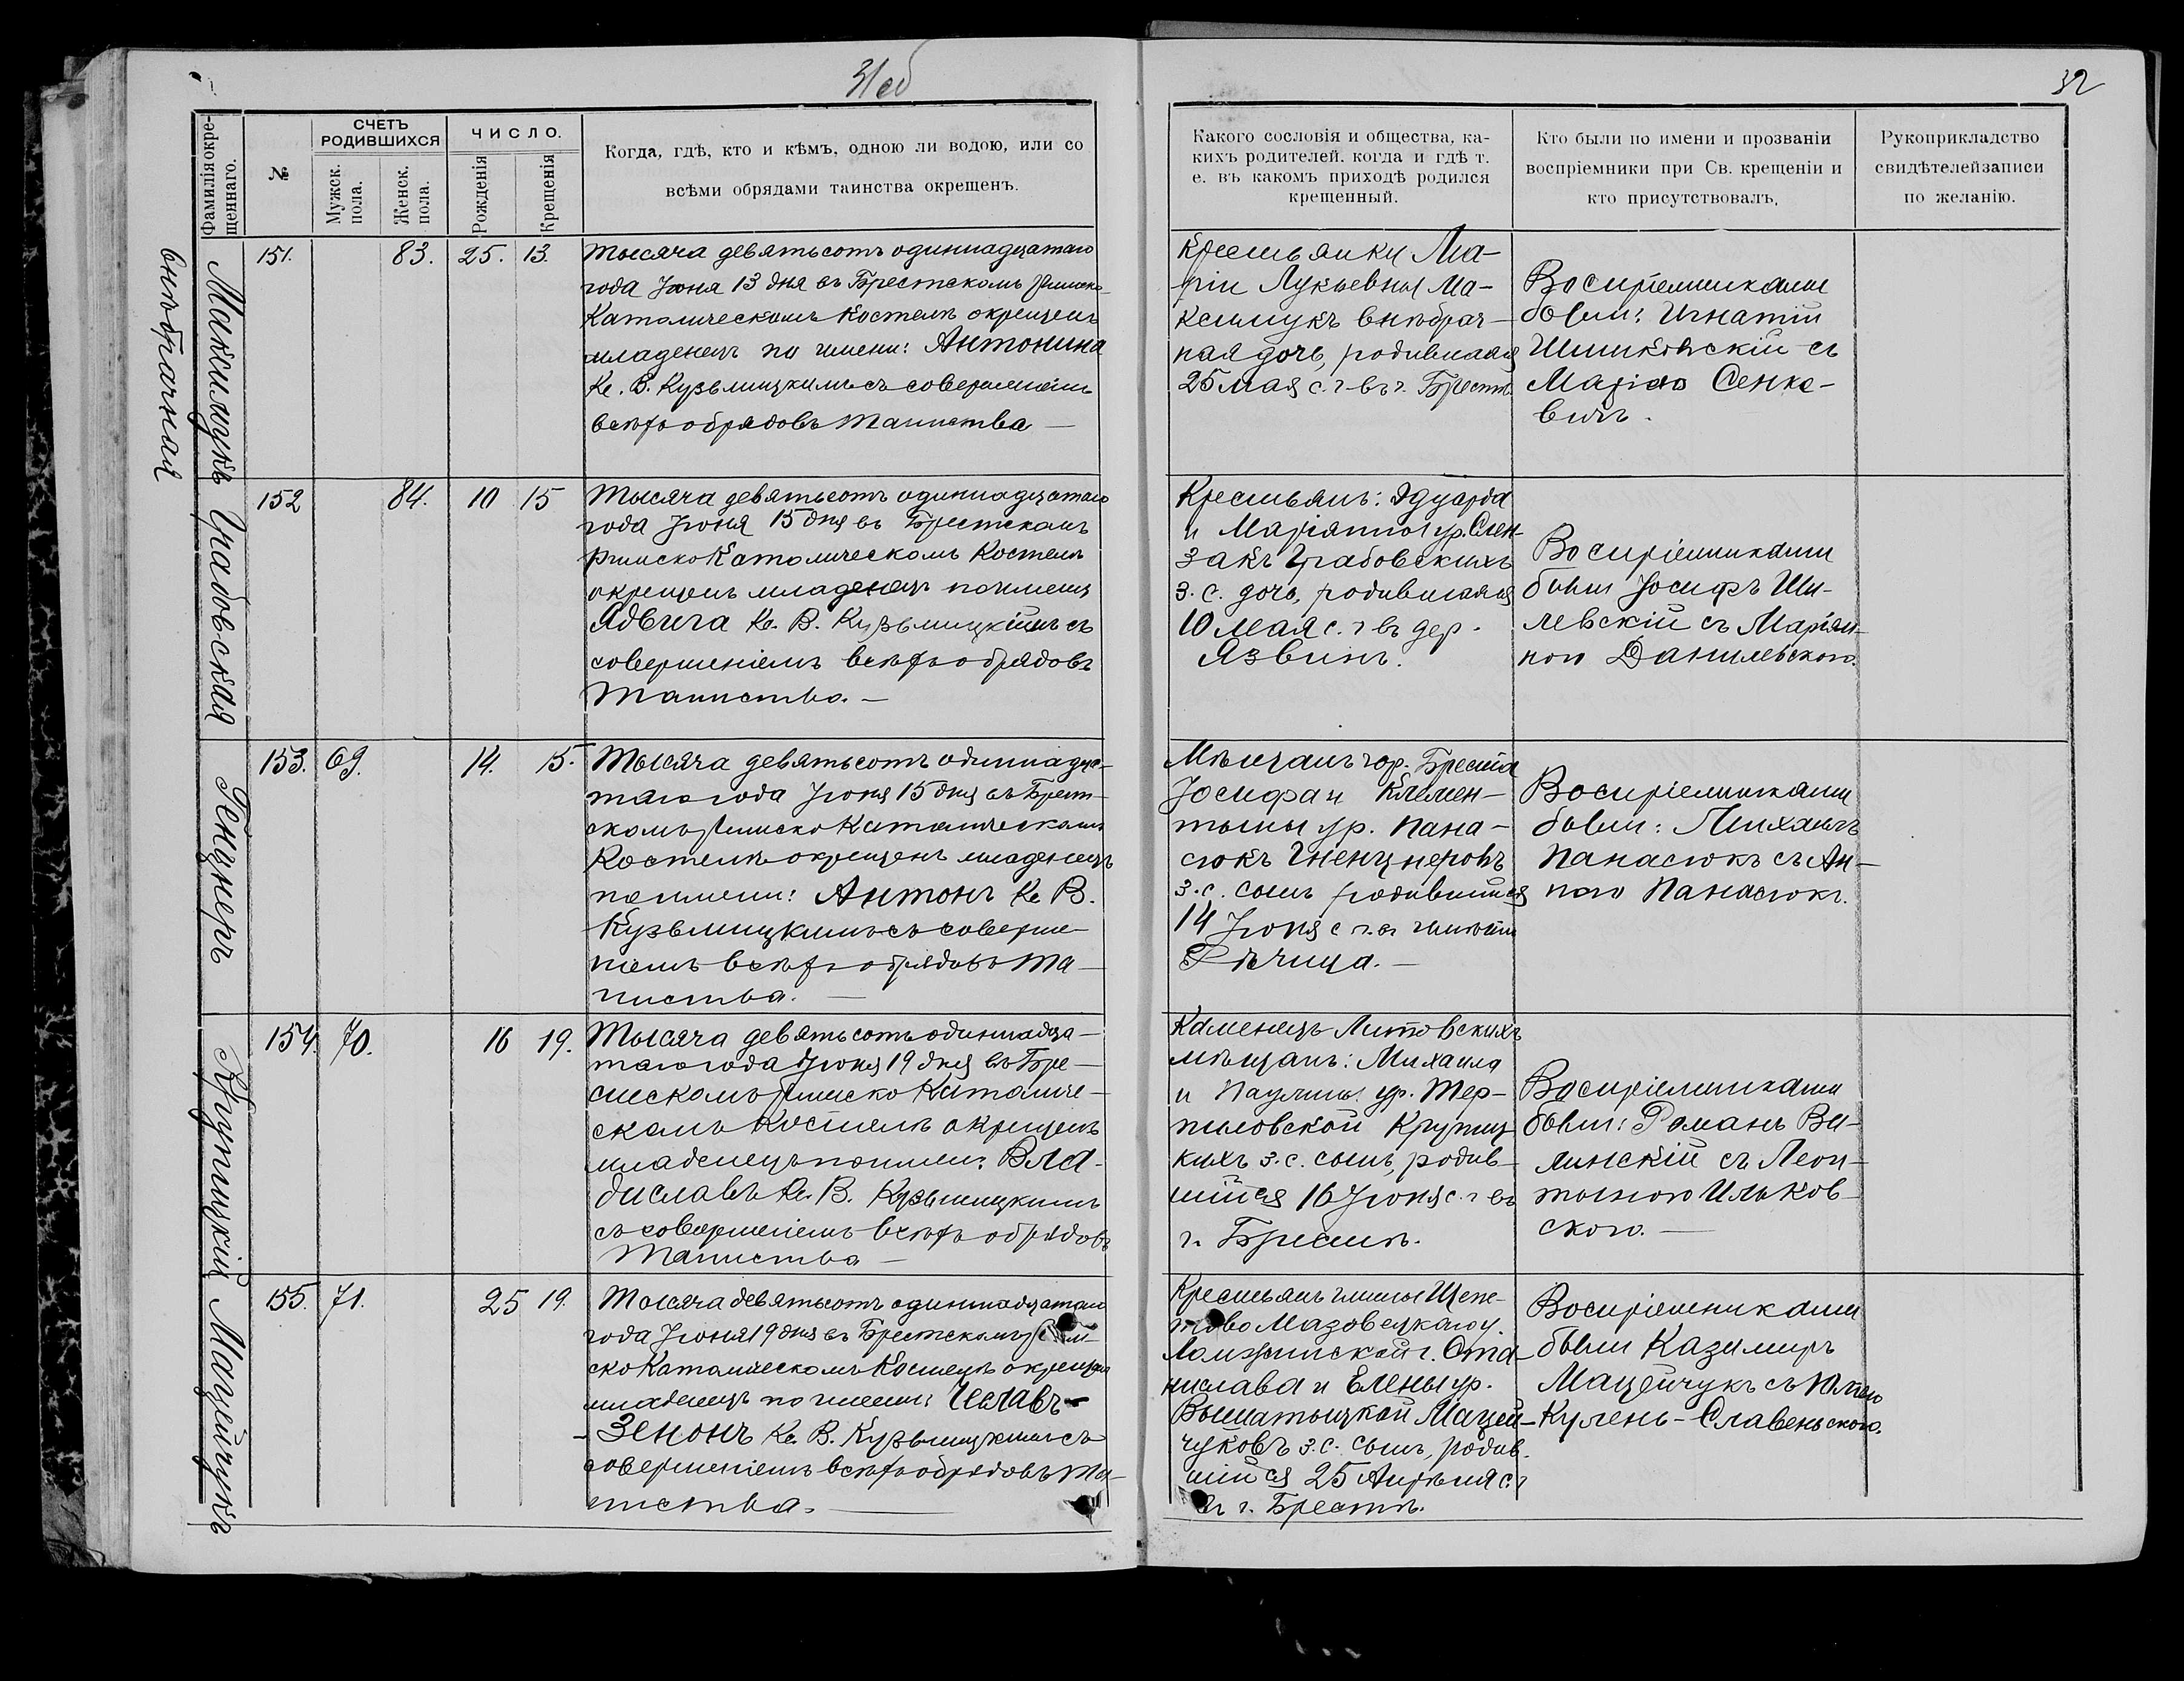 31об
32
Фамилія окре-
щеннаго.
№
СЧЕТЪ
РОДИВШИХСЯ
Мужск.
пола.
Женск.
пола.
ЧИСЛО.
Рожденія
Крещенія
Когда, гдѣ, кто и кѣмъ, одною ли водою, или со
всѣми обрядами таинства окрещенъ.
Какого сословія и общества, ка-
кихъ родителей. когда и гдѣ т.
е. въ какомъ приходѣ родился
крещенный.
Кто были по имени и прозваніи
воспріемники при Св. крещеніи и
кто присутствовалъ,
Рукоприкладство
свидѣтелей записи
по желанію.
Максимукъ
внѣбрачная
151.
83.
25.
13.
Тысяча девятьсотъ одиннадцатаго
года Іюня 13 дня въ Брестскомъ Римско-
Католическомъ Костелѣ окрещенъ
младенецъ по имени: Антонина
Кс. В. Кузьмицкимъ съ совершеніемъ
всѣхъ обрядовъ таинства —
Крестьянки Ма-
ріи Лукьевны Ма-
ксимукъ внѣбрач-
ная дочь, родившаяся
25 мая с. г. въ г. Брестѣ.
Воспріемниками
были: Игнатій
Шишковскій съ
Маріею Сенке-
вичъ.
Грабовская
152
84.
10
15
Тысяча девятьсотъ одиннадцатаго
года Іюня 15 дня въ Брестскомъ
Римско Католическомъ Костелѣ
окрещенъ младенецъ по имени
Ядвига Кс. В. Кузьмицкимъ съ
совершеніемъ всѣхъ обрядовъ
таинства. —
Крестьянъ: Эдуарда
и Маріанны ур. Слен-
закъ Грабовскихъ
з. с. дочь, родившаяся
10 мая с. г. въ дер.
Язвинъ.
Воспріемниками
были Іосифъ
левскій съ Маріян-
ною Данилевскою.
Генцнеръ
153.
69.
14.
15.
Тысяча девятьсотъ одиннадца-
таго года Іюня 15 дня въ Брест-
скомъ Римско Католическомъ
Костелѣ окрещенъ младенецъ
по имени: Антонъ Кс. В.
Кузьмицкимъ съ соверше-
ніемъ всѣхъ обрядовъ та-
инства. —
Мѣщанъ гор. Бреста
Іосифа и Клемен-
тины ур. Пана-
сюкъ Генцнеровъ
з. с. сынъ родившійся
14 Іюня с. г. въ имѣніи
Рѣчица. —
Воспріемниками
были: Михаилъ
Панасюкъ съ Ан-
ною Панасюкъ.
Крупицкій
154.
70.
16
19.
Тысяча девятьсотъ одиннадца-
таго года Іюня 19 дня въ Бре-
стскомъ Римско Католиче-
скомъ Костелѣ окрещенъ
младенецъ по имени: Вла-
диславъ Кс. В. Кузьмицкимъ
съ совершеніемъ всѣхъ обрядовъ
Таинства —
Каменецъ Литовскихъ
мѣщанъ: Михаила
и Паулины ур. Тер-
пиловской Крупиц-
кихъ з. с. сынъ, родив-
шійся 16 Іюня с. г. въ
г. Брестѣ.
Воспріемниками
были: Романъ Ва-
линскій съ Леон-
тыною Ильков-
скою. —
Мацейчукъ
155.
71.
25
19.
Тысяча девятьсотъ одиннадцатаго
года Іюня 19 дня въ Брестскомъ Рим-
ско Католическомъ Костелѣ окрещенъ
младенецъ по имени: Чеславъ-
-Зенонъ Кс. В. Кузьмицкимъ съ
совершеніемъ всѣхъ обрядовъ та-
инства. —
Крестьянъ гмины Шепе-
тово Мазовецкаго у.
Ломжинской г. Ста-
нислава и Елены ур.
Вышатыцкой Мацей-
чуковъ з. с. сынъ, родив-
шійся 25 Апрѣля с. г
въ г. Брестѣ.
Воспріемниками
были Казимиръ
Мацейчукъ съ Юліею
Кулень-Славеньскою.